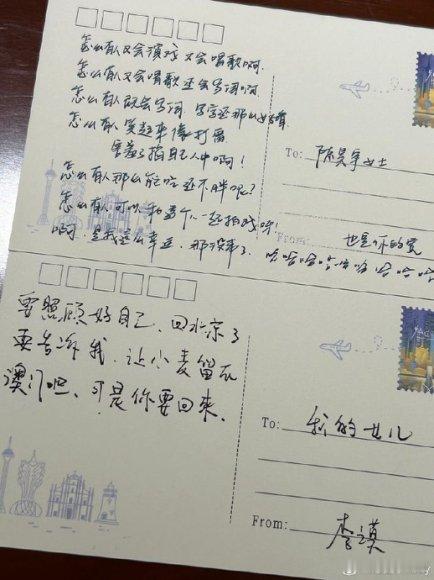 怎么有人又会演戏又会唱歌啊.
怎么有人又会唱歌还会写词啊
怎么有人既会写词 写字还那么好看
怎么有人笑起来像打雷
害羞了掐自己人中啊!
怎么有人那么能吃还不胖呢?
怎么有人可以和这个人一起拍戏呀!
啊,是我这么幸运,那没事了,哈哈哈哈哈哈哈哈哈哈
To: 陈昊宇女士
From: 也是你的宽
要照顾好自己,回北京了
要告诉我,让小麦留在
澳门吧,可是你要回来.
To: 我的女儿
From: 李